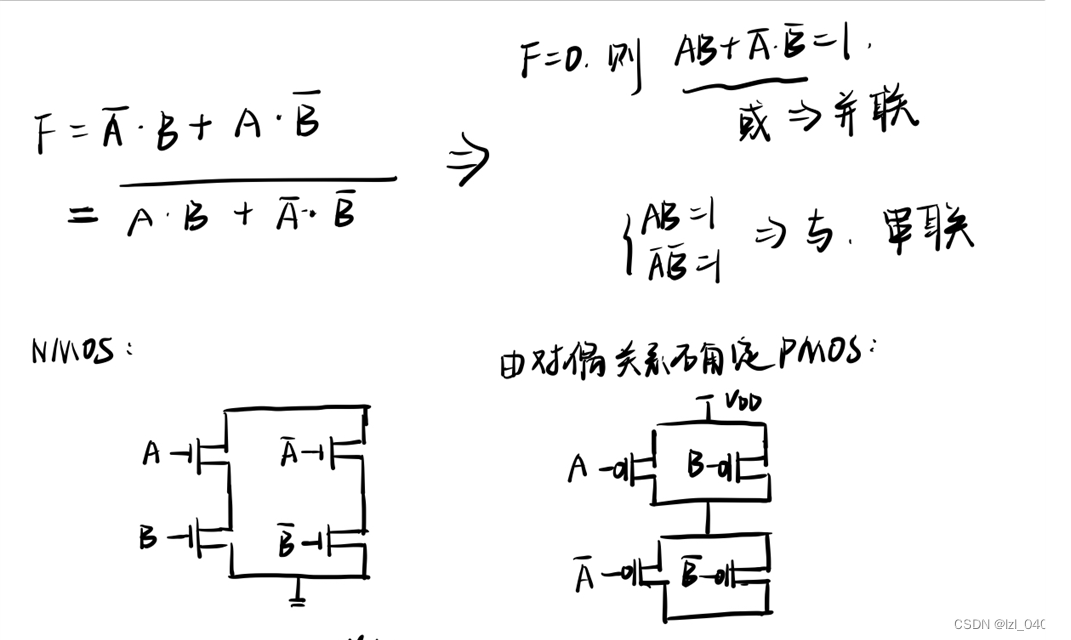 F = A̅·B + A·B̅
= \overline{A·B + A̅·B̅}
⇒
F=0. 则 AB+A̅·B̅=1.
或 ⇒ 并联
{AB=1
A̅B̅=1 ⇒ 与. 串联
NMOS:
A A̅
B B̅
由对偶关系不角定PMOS:
VDD
A B
A̅ B̅
CSDN @lzl_040